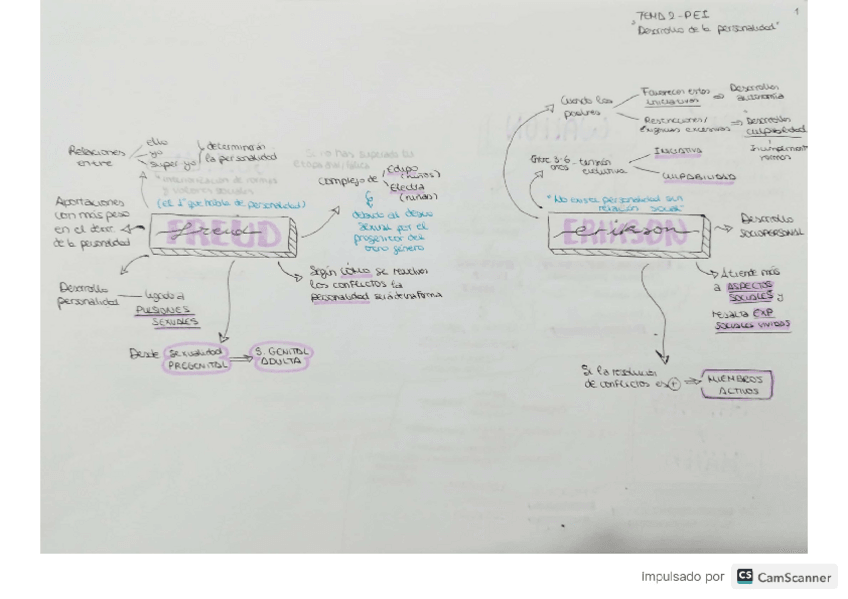 TEMA 2 - PEI
"Desarrollo de la personalidad"
1
Relaciones
entre
ello
yo
super-yo
determinarán
la personalidad
(el 1º que habla de personalidad)
Aportaciones
con más peso
en el desar.
de la personalidad
FREUD
freud
Complejo de
Edipo
(niños)
Electra
(niñas)
debido al deseo
sexual por el
progenitor del
otro género
Según cómo se resuelvan
los conflictos la
personalidad será de una forma
Desarrollo
personalidad
ligado a
PULSIONES
SEXUALES
Desde
sexualidad
PREGENITAL
S. GENITAL
ADULTA
Cuando los
padres
Favorecen estas
iniciativas
Desarrollo
autonomía
Restricciones/
exigencias excesivas
Desarrollan
culpabilidad
Entre 3-6
años
INICIATIVA
CULPABILIDAD
"No existe personalidad sin
relación social"
ERIKSON
erikson
Desarrollo
SOCIOPERSONAL
Atiende más
a ASPECTOS
SOCIALES y
resalta EXP
SOCIALES VIVIDAS
Si la resolución
de conflictos es +
MIEMBROS
ACTIVOS
Impulsado por CS CamScanner